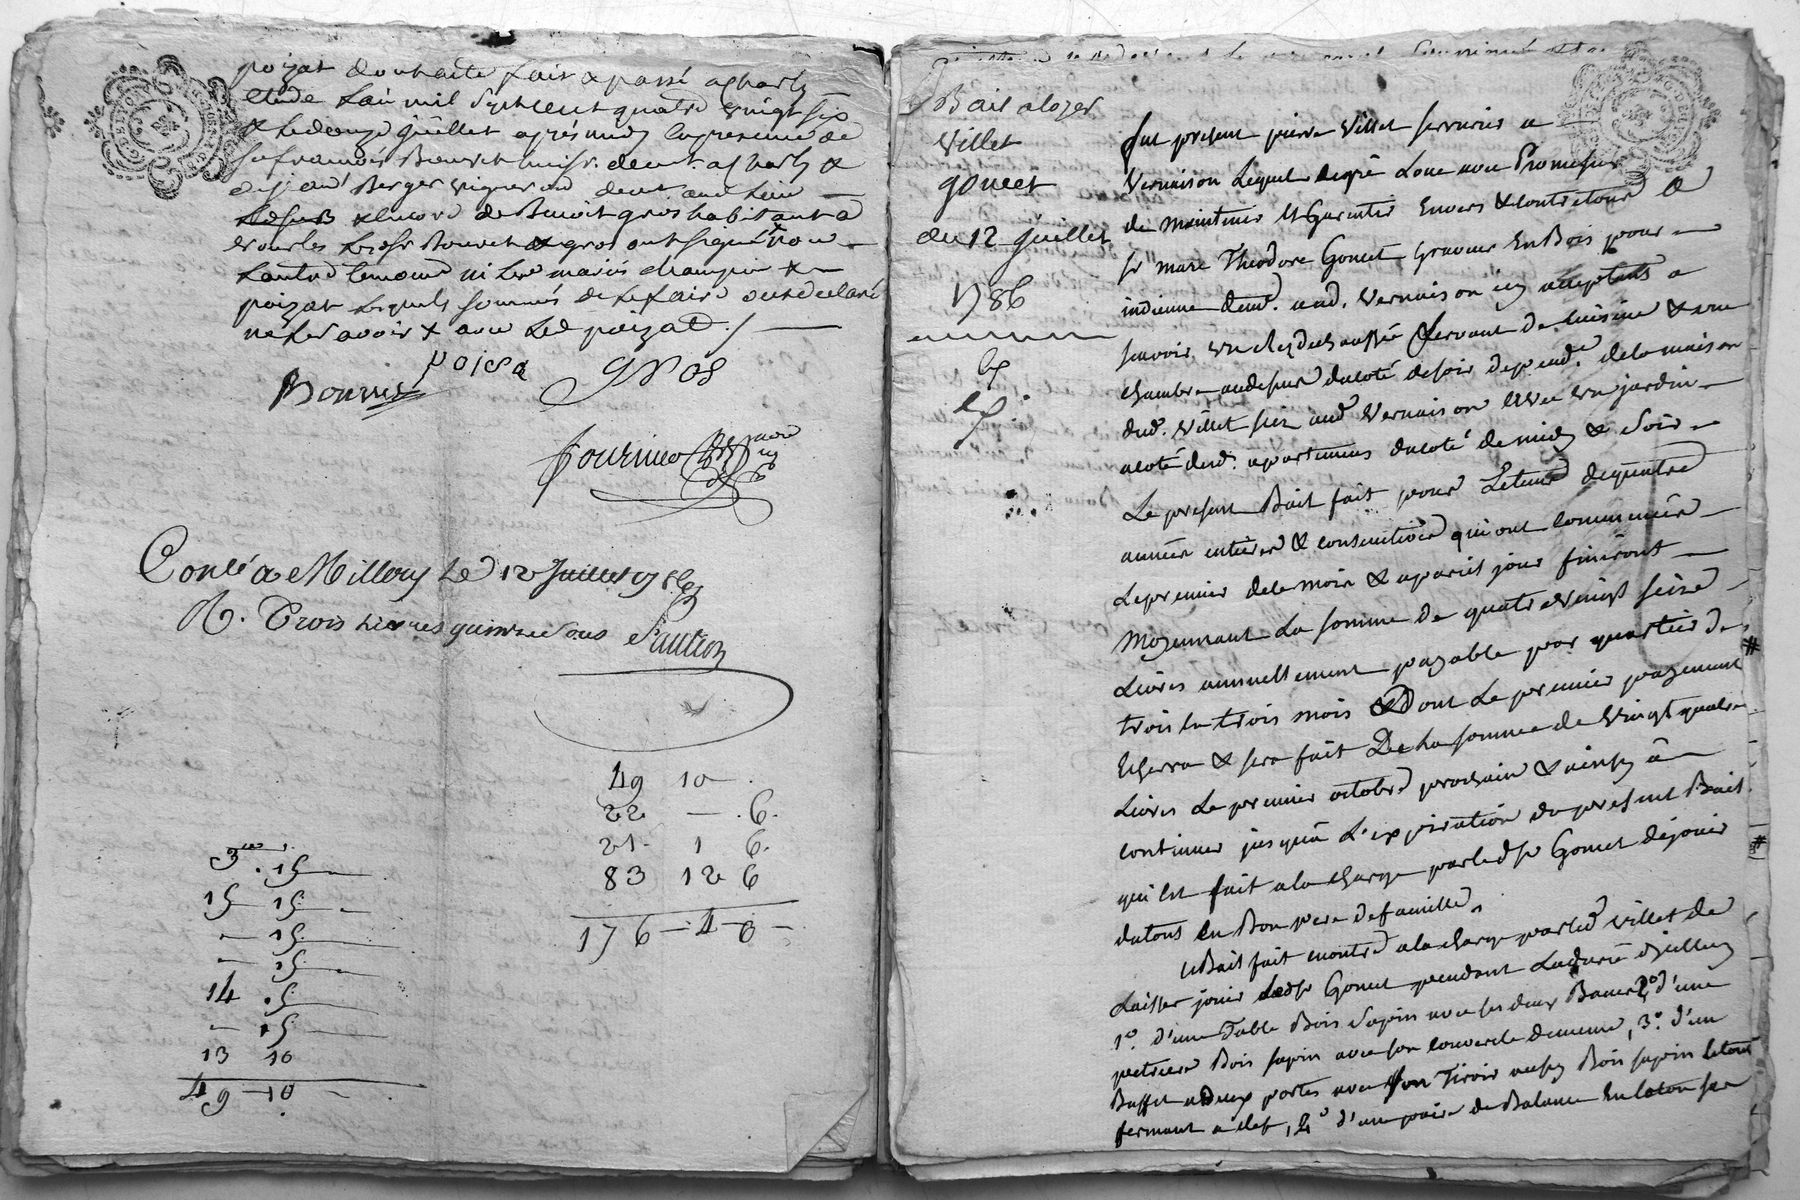 poizat douhaite fait & passé a charly
etude L'an mil sept cent quatre vingt six
& Le douze Juillet après midy En presence de
sr françois Bouvet demt. a charly &
Berger vigneron demt
de Benoit gros habitant a
Les dsr Bouvet & gros ont signé non
L'autre temoin ni Les mariés champin &
poizat Lesquels sommés de Le faire ont declaré
ne Le savoir & avec Led poizat ./
poiza
Bouvet
gros
fournier
Conlé a Millery Le 12 Juillet 1786
R. Trois Livres quinze sous
49 10
22 — 6.
21. 1 6.
83 12 6
176 — 4 — 6 —
3 . 15
15 15
— 15
— 15
14 . 5
— 15
13 10
49 — 10
Bail a loyer
Villet
gonet
du 12 Juillet
1786
fut present pierre Villet serrurier a
Vernaison Lequel de gré Loue avec Promesse
de maintenir et Garantir Envers & contre tous a
sr marc Theodore Gonet Graveur En Bois pour
indienne demt. aud. Vernaison icy acceptant a
savoir un rez de chaussée servant de cuisine & une
chambre au dessus du coté de soir depende. de la maison
dud. Villet size aud Vernaison avec un jardin
a coté desd. apartemens du coté de midy & soir
Le present Bail fait pour Le tems de quatre
années entieres & consecutives qui ont commencées
Le premier de ce mois & a pareil jour finiront
Moyennant La somme de quatre vingt seize
Livres annuellement payable par quartier de #
trois en trois mois Dont Le premier payement
Echerra & sera fait De La somme de vingt quatre
Livres Le premier octobre prochain & ainsy a
continuer jusqu'a L'expiration du present Bail #
qui est fait a la charge par led sr Gonet de jouir
du tout en Bon pere de famille.
Bail fait en outre a la charge par led Villet de
Laisser jouir Led sr Gonet pendant La durée d'icelluy
1o. d'une Table Bois sapin avec ses deux Bancs, 2o d'une
petriere Bois sapin avec son couvercle de meme, 3o. d'un
Buffet a Deux portes avec son Tiroir aussy Bois sapin Le tout
fermant a clef, 4o d'une paire de Balance En laton sur